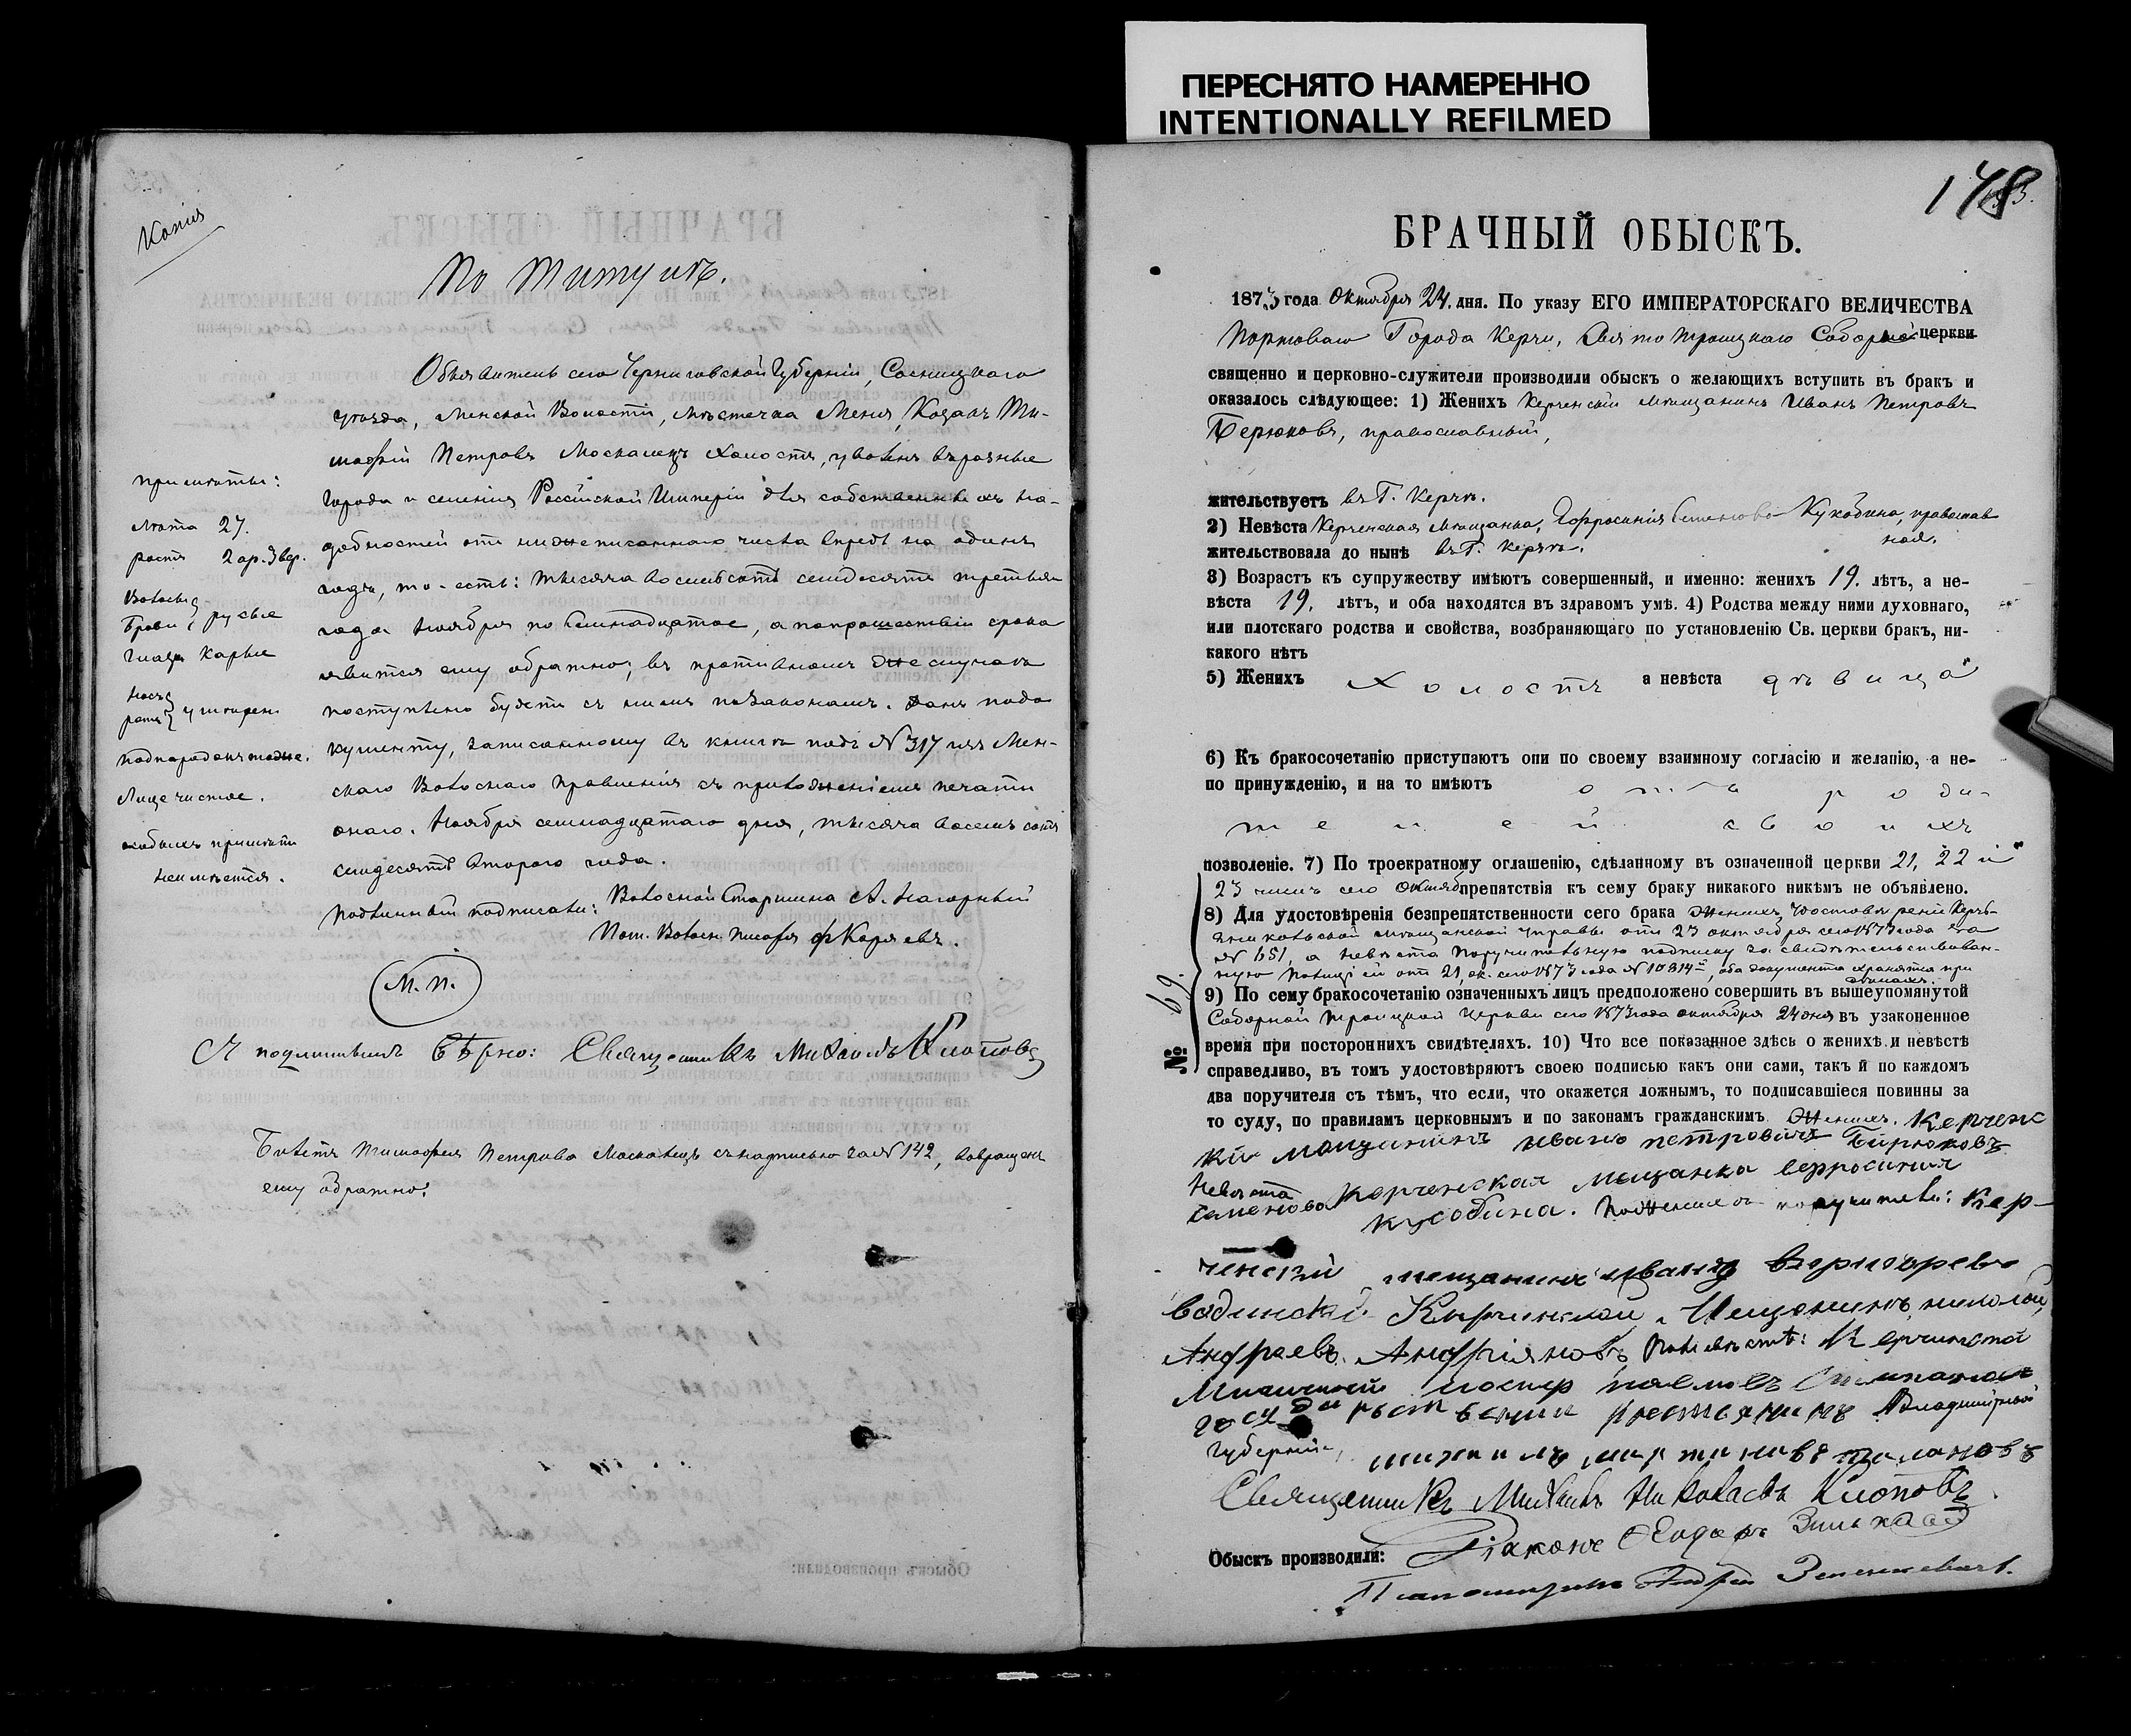 ПЕРЕСНЯТО НАМЕРЕННО
INTENTIONALLY REFILMED
Копія
По титулѣ.
Объявитель сего Черниговской Губерніи, Сосницкаго
уѣзда, Менской Волости, мѣстечка Мены, Козакъ Ти-
мофѣй Петровъ Москалецъ холостъ, уволенъ въ разные
города и селенія Россійской Имперіи для собственныхъ на-
добностей отъ нижеписаннаго числа впредь на одинъ
годъ, то-есть: тысяча восемьсотъ семдесятъ третьяго
года Ноября по семнадцатое, а по прошествіи срока
явится ему обратно; въ противномъ же случаѣ
поступлено будетъ съ нимъ по законамъ. Данъ по до
кументу, записанному въ книгѣ подъ № 317 изъ Мен-
скаго Волоснаго Правленія съ приложеніемъ печати
онаго. Ноября семнадцатаго дня, тысяча восемъ сотъ
семдесятъ втораго года.
Подлинный подписали: Волосной Старшина А. Нагорный
Пом. Волосн. Писаря Ф Каряевъ.
М. П.
Примѣты:
лѣта 27.
ростъ 2 ар. 3 вер.
Волосы
брови русые
глаза карые
носъ
ротъ умѣрен
подпородокъ тоже.
Лице чистое.
особыхъ примѣтъ
неимѣется.
Съ подлиннымъ вѣрно: Священникъ Михаилъ Клоповъ
Билетъ Тимофея Петрова Москалецъ съ надписью за № 142, возвращенъ
ему обратно.
178
БРАЧНЫЙ ОБЫСКЪ.
1873 года Октября 24. дня. По указу ЕГО ИМПЕРАТОРСКАГО ВЕЛИЧЕСТВА
Портоваго Города Керчи, Свято Троицкаго Собора церкви
священно и церковно-служители производили обыскъ о желающихъ вступить въ бракъ и
оказалось слѣдующее: 1) Женихъ Керченскій мѣщанинъ Иванъ Петровъ
Берюковъ, православный,
жительствуетъ въ Г. Керчѣ.
2) Невѣста Керченская Мѣщанка, Ефросинія Семенова Кукобина, православ
ная.
жительствовала до нынѣ въ Г. Керчѣ.
3) Возрастъ къ супружеству имѣютъ совершенный, и именно: женихъ 19. лѣтъ, а не-
вѣста 19. лѣтъ, и оба находятся въ здравомъ умѣ. 4) Родства между ними духовнаго,
или плотскаго родства и свойства, возбраняющаго по установленію Св. церкви бракъ, ни-
какого нѣтъ
5) Женихъ холостъ а невѣста дѣвица
6) Къ бракосочетанію приступаютъ они по своему взаимному согласію и желанію, а не-
по принужденію, и на то имѣютъ отъ роди-
телей своихъ
позволеніе. 7) По троекратному оглашенію, сдѣланному въ означенной церкви 21, 22 и
23 числъ сего Октяб препятствія къ сему браку никакого никѣмъ не объявлено.
8) Для удостовѣренія безпрепятственности сего брака Женихъ, удостовѣреніе Керчь-
Еникольской мѣщанской Управы отъ 23 октября сего 1873 года за
№ 651, а невѣста Поручительную подписку за свидѣтельствован-
ную Полиціей отъ 21, ок. сего 1873 года № 10314й, оба документа хранятся при
обыскѣ.
9) По сему бракосочетанію означенныхъ лицъ предположено совершить въ вышеупомянутой
Соборной Троицкой Церкви сего 1873 года октября 24 дня въ узаконенное
время при постороннихъ свидѣтеляхъ. 10) Что все показанное здѣсь о женихѣ и невѣстѣ
справедливо, въ томъ удостовѣряютъ своею подписью какъ они сами, такъ й по каждомъ
два поручителя съ тѣмъ, что если, что окажется ложнымъ, то подписавшіеся повинны за
то суду, по правиламъ церковнымъ и по законамъ гражданскимъ Женихъ. Керченс
кій мещанинъ иванъ петровичъ Бирюковъ
Невѣста Керченская мещанка Ефросиния
Семенова Кусобина. По женихѣ поручители: Кер-
ченскій мещанинъ иванъ
Керчинской Мещенинъ николай
Андреевъ Андріяновъ По невѣстѣ: Керчинской
государственни крестьянинъ Владимірской
Губерніи,
Священникъ Михаилъ Николаевъ Клоповъ
Обыскъ производили: Діаконъ Ѳеодоръ
Псаломщикъ Андрей
№ 69.